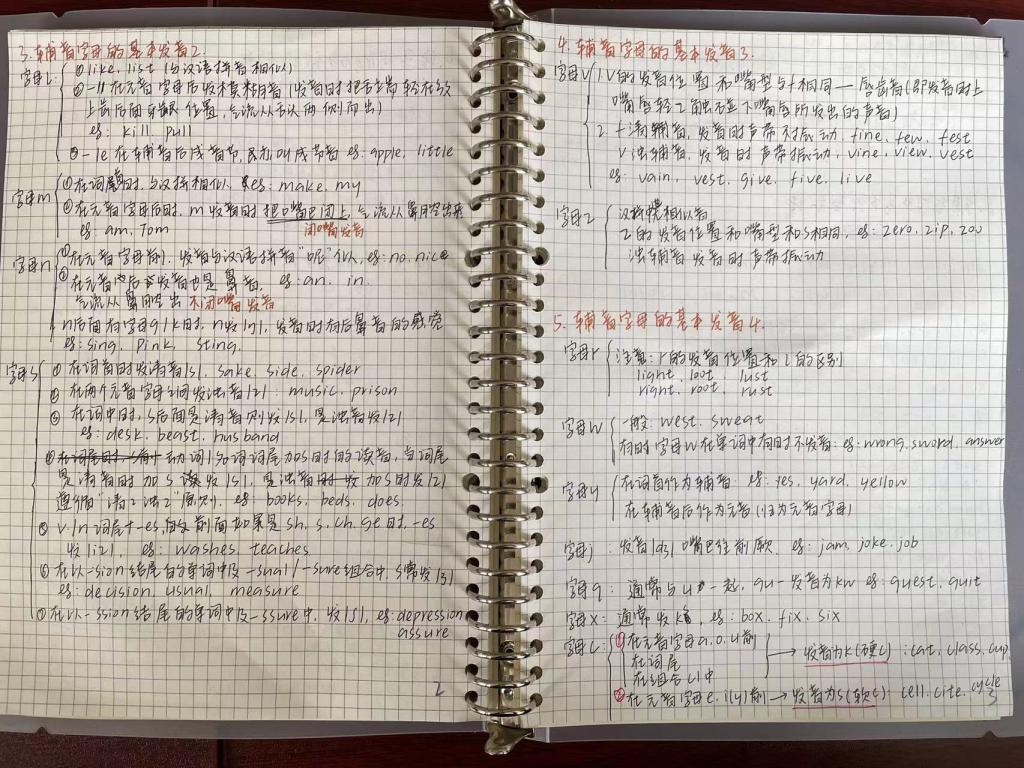 3. 辅音字母的基本发音2.
字母l ① like. list (与汉语拼音相似)
② -ll 在元音字母后发模糊音 (发音时把舌端轻在
上齿后面 位置, 气流从舌头两侧而出)
eg: kill. pull
③ -le 在辅音后成音节, 也叫成节音 eg. apple. little
字母m ① 在词首时. 与汉拼相似. eg: make. my
② 在元音字母后时. m发音时把嘴巴闭上, 气流从鼻腔出来
eg. am. Tom 闭嘴发音
字母n ① 在元音字母前. 发音与汉语拼音"呢"似. eg: no. nice
② 在元音后发音也是鼻音. eg: an. in.
气流从鼻腔出 不闭嘴发音
n后面有字母g/k时, n发/ŋ/, 发音时有后鼻音的感觉
eg: sing. pink. sting.
字母s ① 在词首时发清音/s/. sake. side. spider
② 在两个元音字母之间发浊音/z/: music. prison
③ 在词中时, s后面是清音则发/s/, 是浊音发/z/
eg: desk. beast. husband
④ 动词/名词词尾加s时的读音, 当词尾
是清音时加s读发/s/, 是浊音加s时发/z/
遵循"清清浊浊"原则. eg: books. beds. does
⑤ v./n 词尾+-es, 的前面如果是sh, s, ch, ge时, -es
发/iz/, eg: washes. teaches
⑥ 在以-sion结尾的单词中及-sual/-sure组合中, s常发/ʒ/
eg: decision. usual. measure
⑦ 在以-ssion结尾的单词中及-ssure中, 发/ʃ/, eg: depression
assure
2
4. 辅音字母的基本发音3.
字母v 1 v的发音位置和嘴型与f相同——唇齿音(即发音时上
嘴唇轻轻触碰下嘴唇所发出的声音)
2 f清辅音, 发音时声带不振动, fine, few, fest
v浊辅音, 发音时声带振动, vine, view, vest
eg: vain, vest, give, five, live
字母z 汉拼相似音
z的发音位置和嘴型和s相同, eg: zero, zip, zoo
浊辅音发音时声带振动
5. 辅音字母的基本发音4.
字母r 注意: r的发音位置和l的区别
light. loot. lust
right. root. rust
字母w 一般: west. sweat
有时字母w在单词中有时不发音: eg: wrong. sword. answer
字母y 在词首作为辅音: eg: yes. yard. yellow
在辅音后作为元音(归为元音字母)
字母j: 发音/dʒ/ 嘴巴往前厥. eg: jam. joke. job
字母q: 通常与u一起, qu-发音为kw eg: quest. quit
字母x: 通常发ks, eg: box. fix. six
字母c: ① 在元音字母a.o.u前
在词尾 → 发音为k(硬c): cat. class. cup.
在组合cl中
② 在元音字母e, i(y)前 → 发音为s(软c): cell. cite. cycle
3